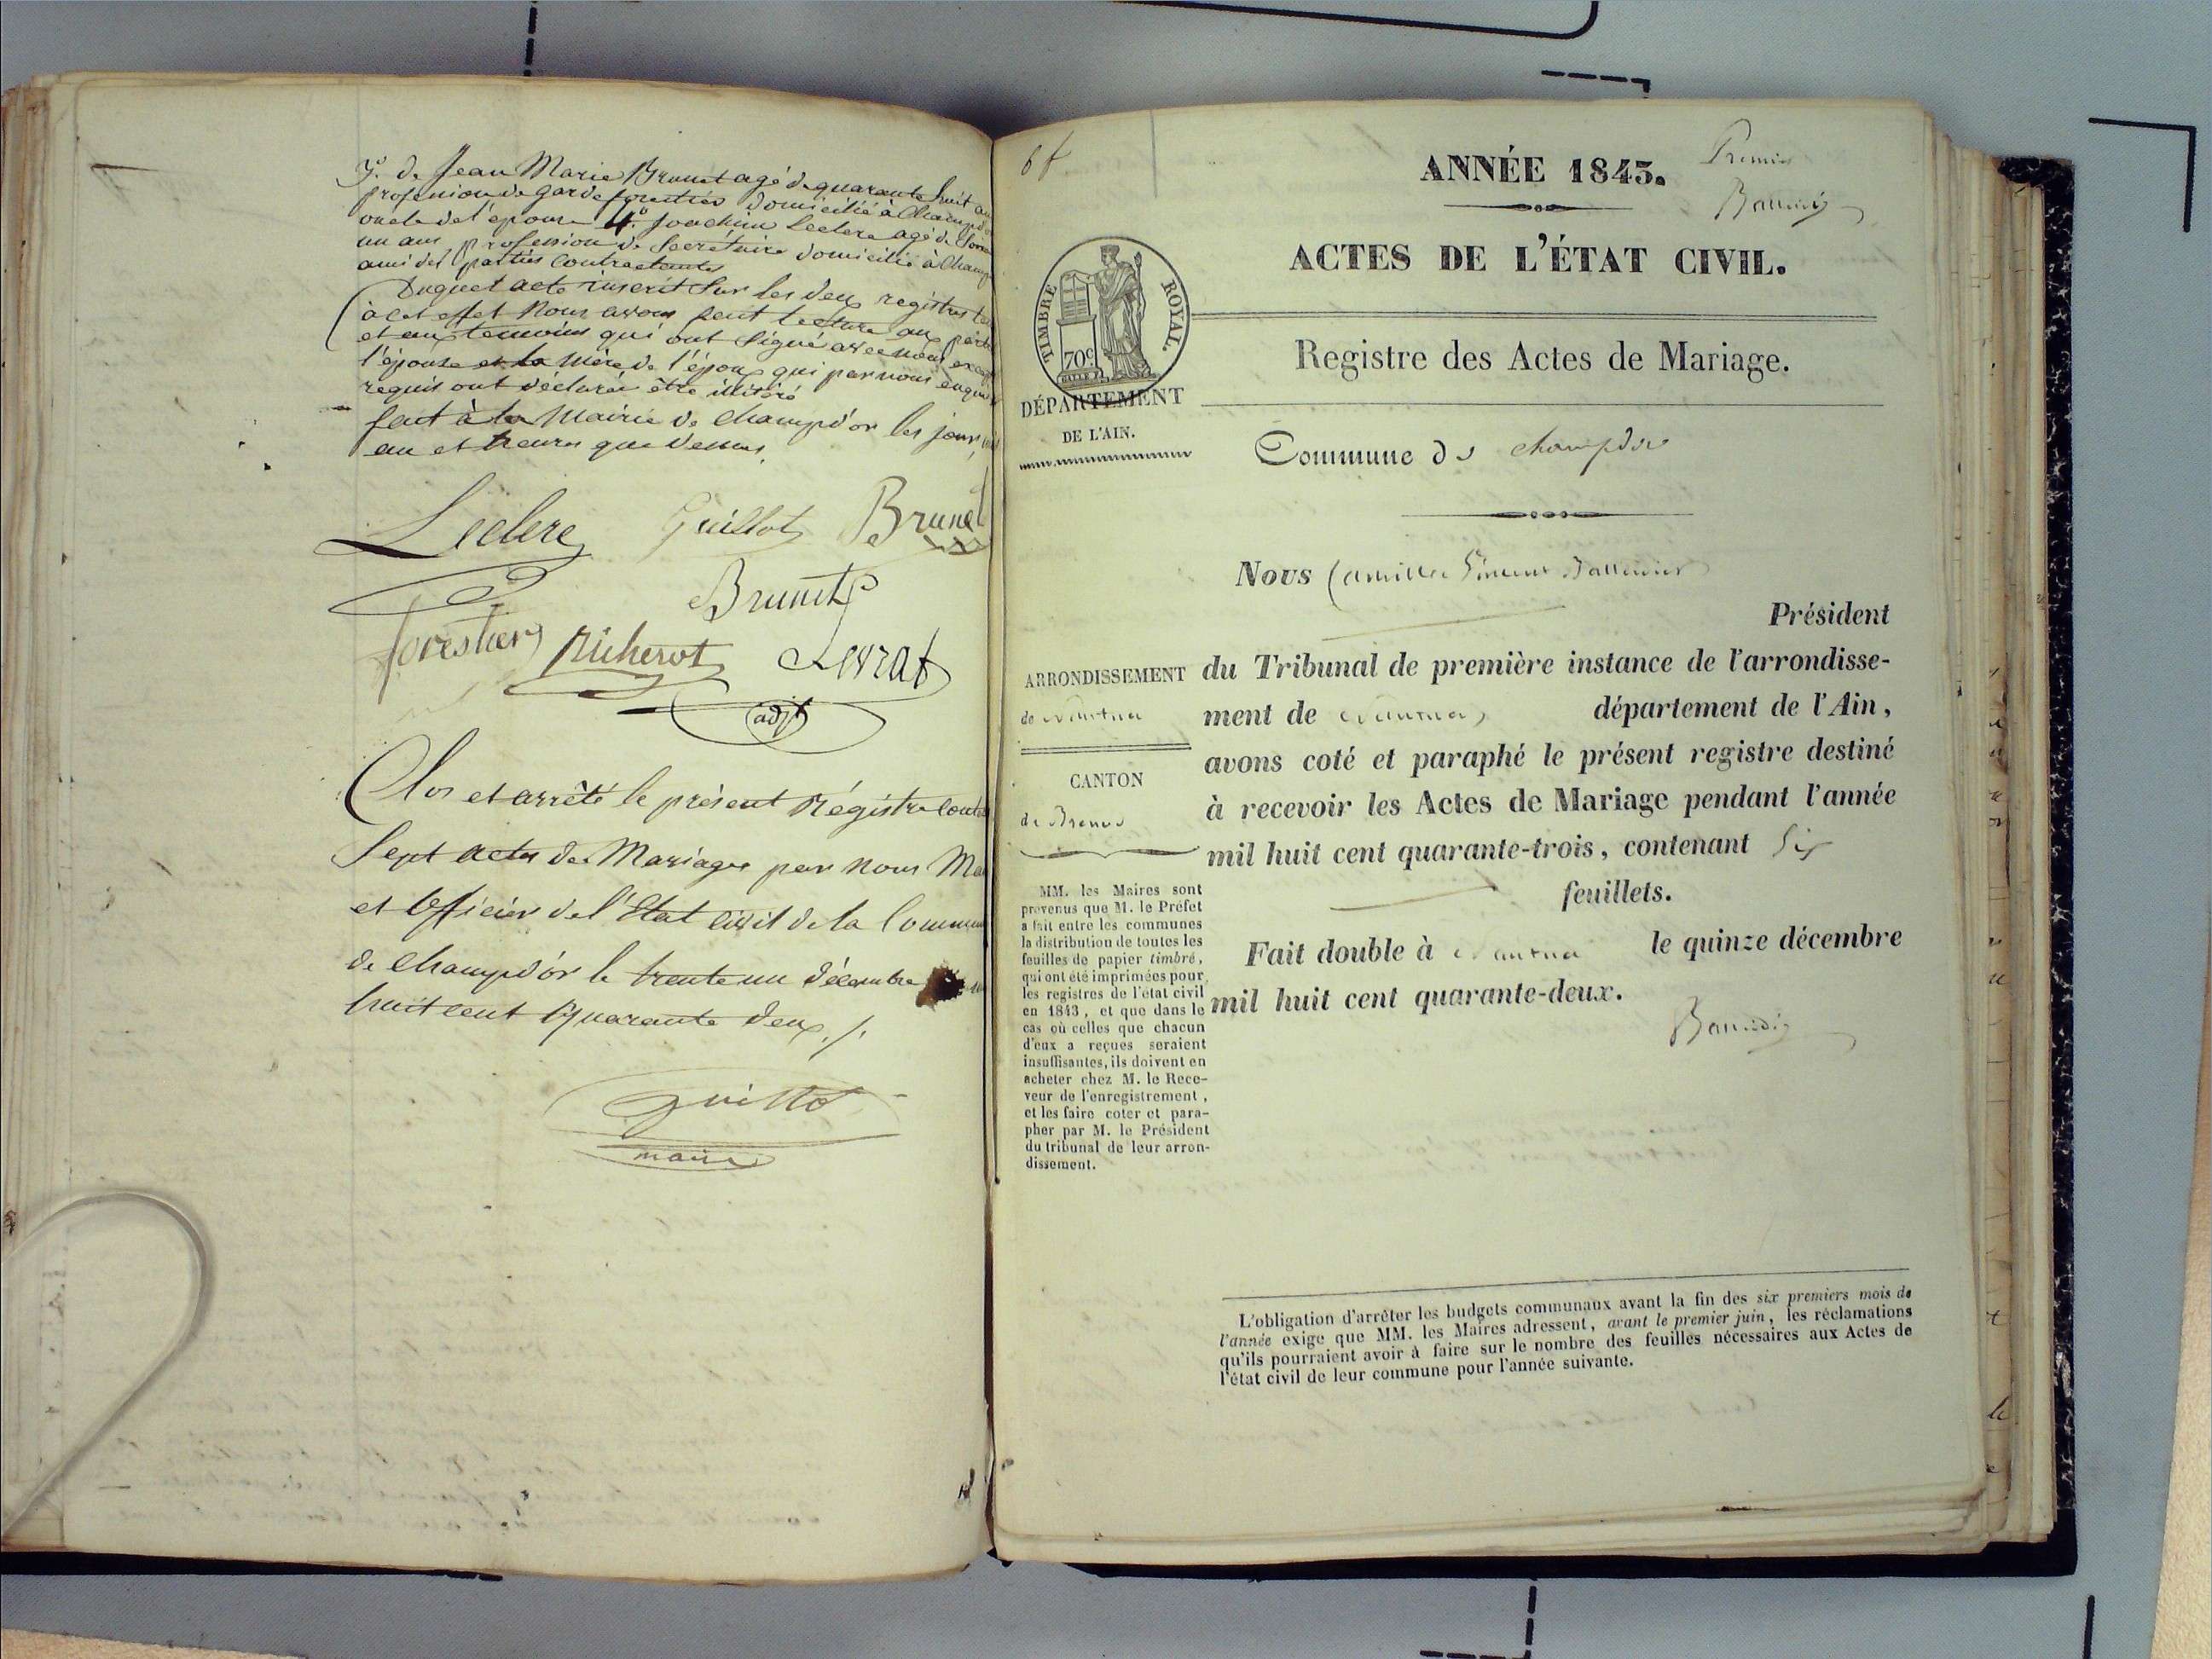 3º. de Jean Marie Brunet agé de quarante huit
profession de garde forestier domicilié à Champd'or
oncle de l'épouse 4º Joachim Leclerc agé de
un ans, profession de Secrétaire domicilié à
ami des parties Contractantes
Duquel acte inscrit sur les deux registres
à cet effet Nous avons fait lecture aux
et aux temoins qui ont signé avec nous
l'épouse et la Mère de l'époux qui par nous
requis ont déclaré être illitéré
fait à la Mairie de Champd'or les jour,
an et heures que dessus.
Leclerc Guillot Brunet
Brunet
forestier Richerot Levrat
adjt
Clos et arrêté le présent Régistre
Sept actes de Mariage par nous
et Officier de l'Etat civil de la
de Champd'or le trente un décembre
huit cent quarante deux ./.
Guillot
maire
6 f
Premier
ANNÉE 1843.
ACTES DE L'ÉTAT CIVIL.
TIMBRE ROYAL.
70c
Registre des Actes de Mariage.
DÉPARTEMENT
DE L'AIN.
Commune de Champdor
Nous Camille Vincent
Président
ARRONDISSEMENT
de Nantua
CANTON
de Brenod
du Tribunal de première instance de l'arrondisse-
ment de Nantua, département de l'Ain,
avons coté et paraphé le présent registre destiné
à recevoir les Actes de Mariage pendant l'année
mil huit cent quarante-trois, contenant Six
feuillets.
Fait double à Nantua le quinze décembre
mil huit cent quarante-deux.
MM. les Maires sont
prévenus que M. le Préfet
a fait entre les communes
la distribution de toutes les
feuilles de papier timbré,
qui ont été imprimées pour
les registres de l'état civil
en 1843, et que dans le
cas où celles que chacun
d'eux a reçues seraient
insuffisantes, ils doivent en
acheter chez M. le Rece-
veur de l'enregistrement,
et les faire coter et para-
pher par M. le Président
du tribunal de leur arron-
dissement.
L'obligation d'arrêter les budgets communaux avant la fin des six premiers mois de
l'année exige que MM. les Maires adressent, avant le premier juin, les réclamations
qu'ils pourraient avoir à faire sur le nombre des feuilles nécessaires aux Actes de
l'état civil de leur commune pour l'année suivante.